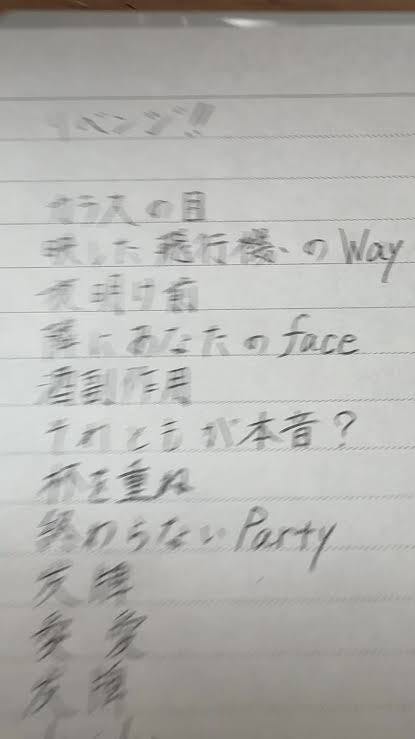 リベンジ!!
ガラスの目
映した飛行機のWay
夜明け前
隣にあなたのface
酒副作用
それともが本音?
杯を重ね
終わらないParty
友
愛 愛
友